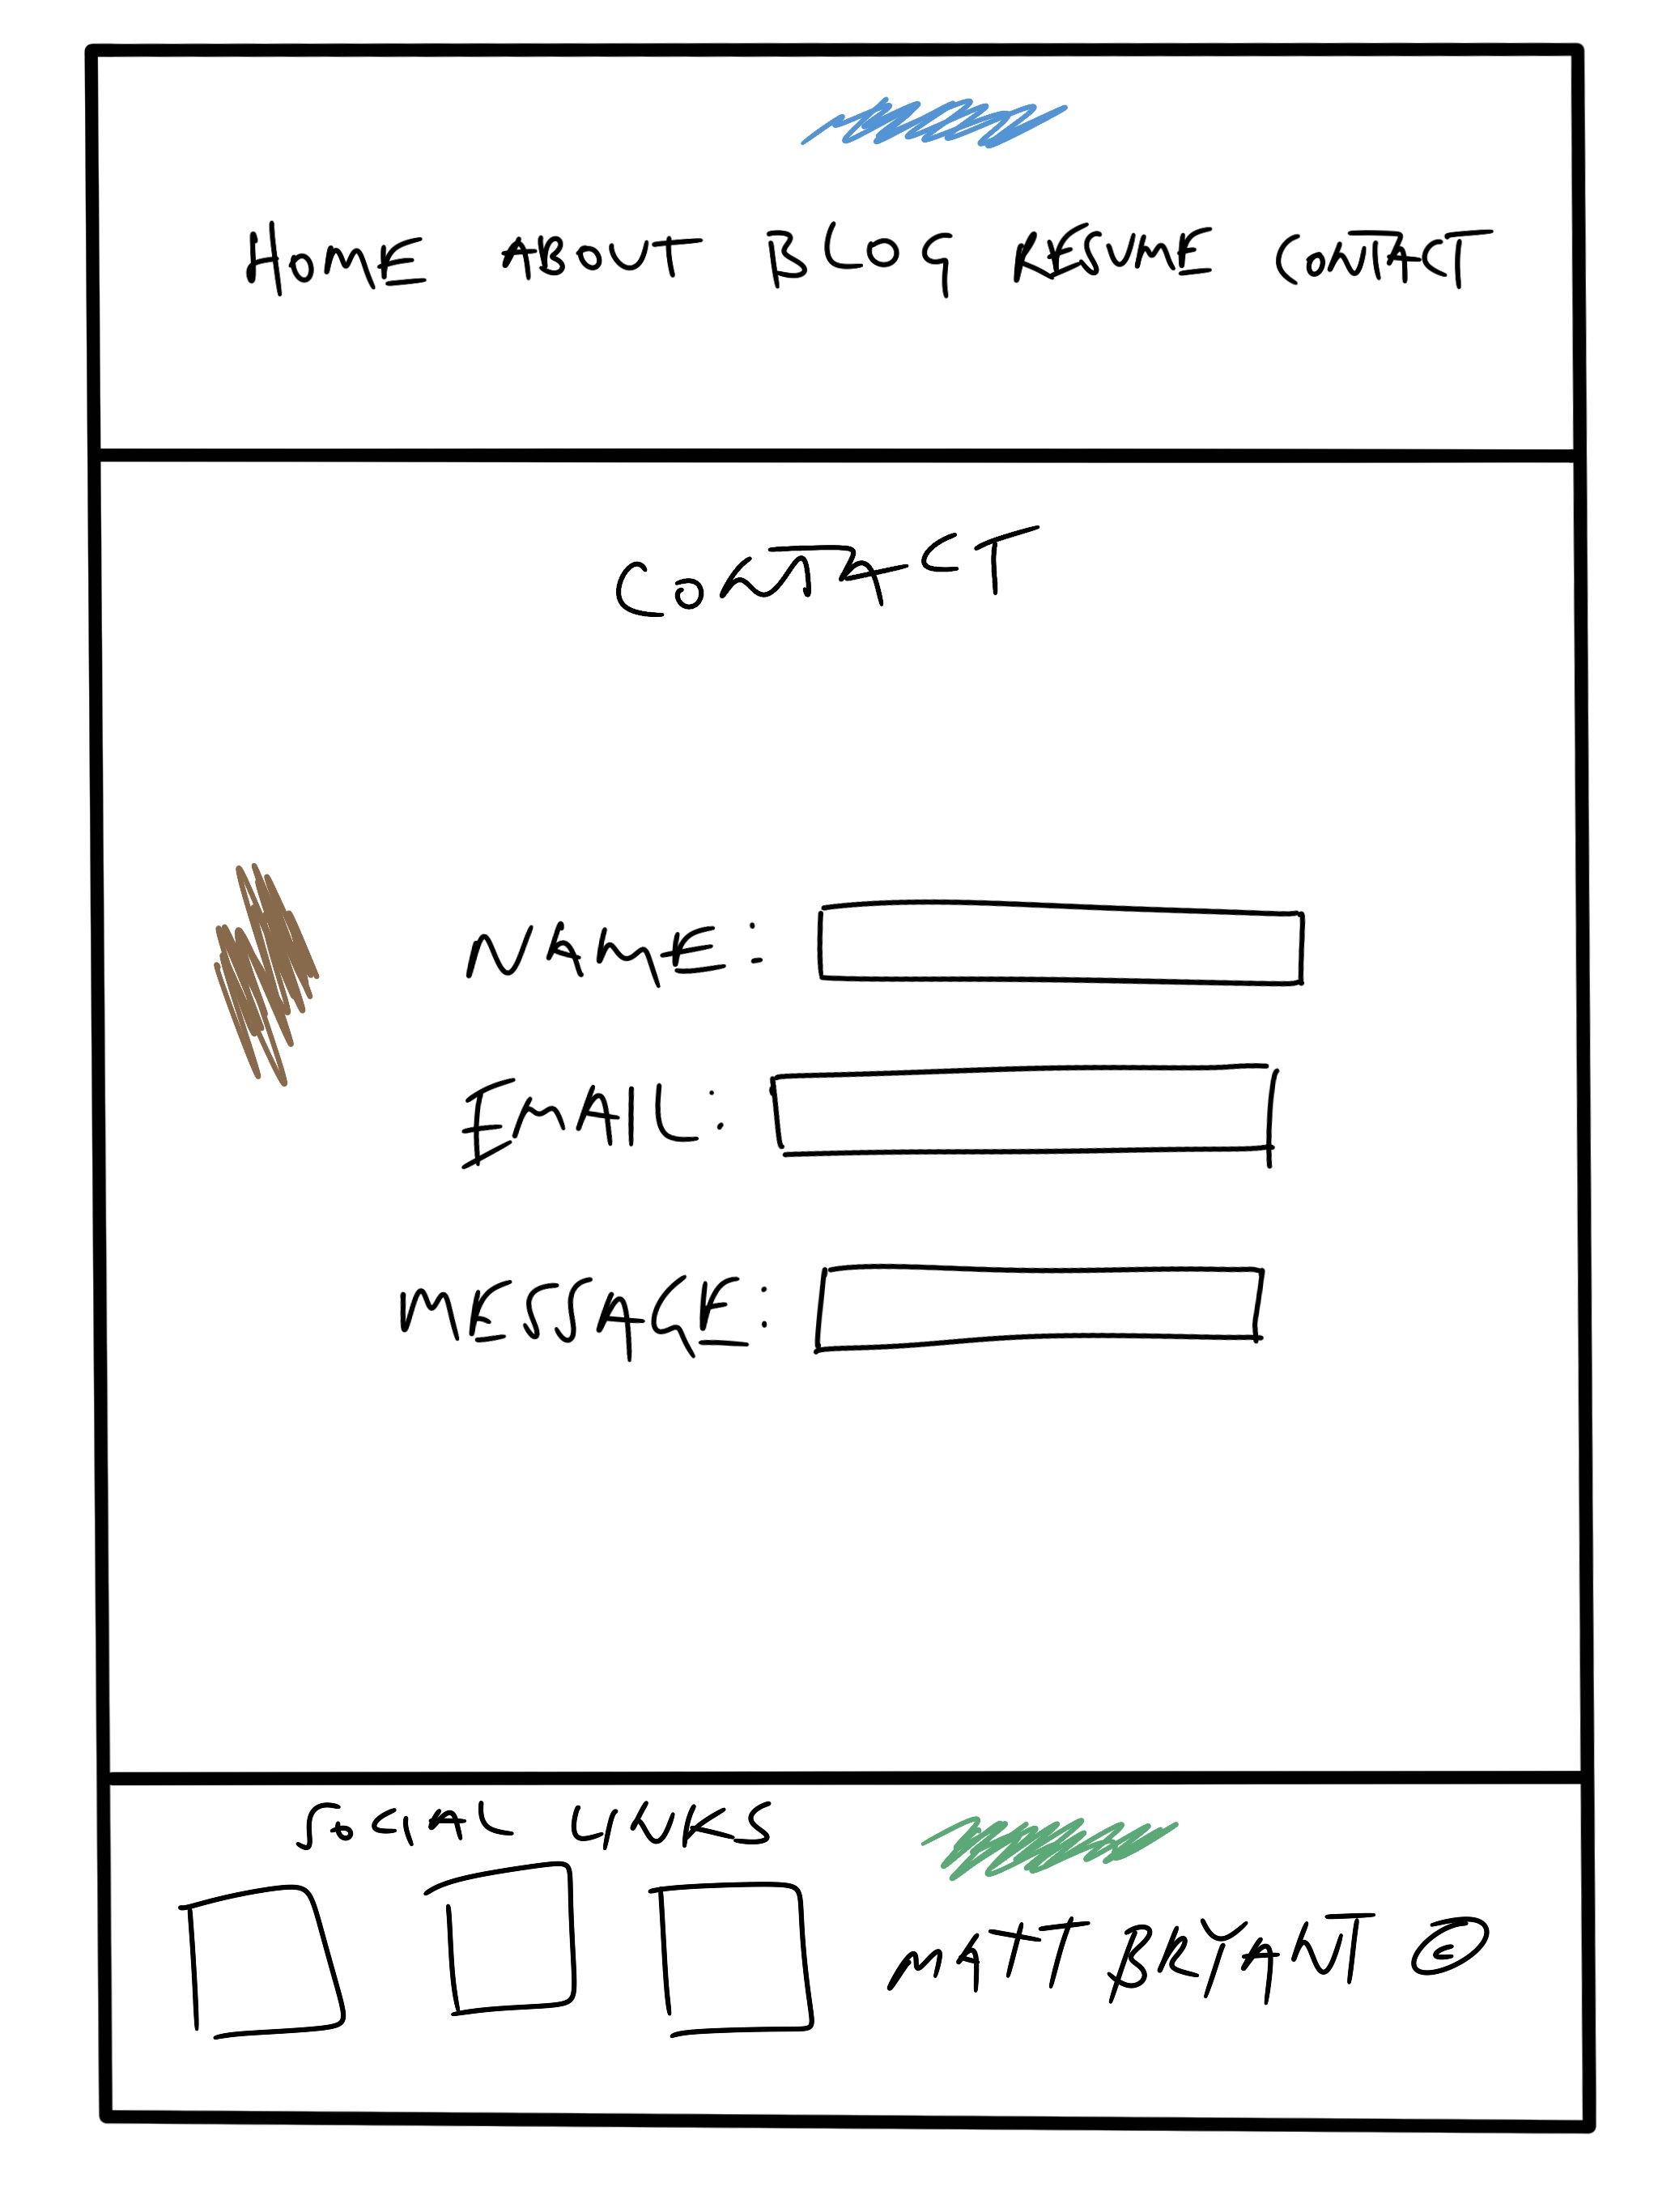 HOME ABOUT BLOG RESUME CONTACT
CONTACT
NAME:
EMAIL:
MESSAGE:
SOCIAL LINKS
MATT BRYANT ©